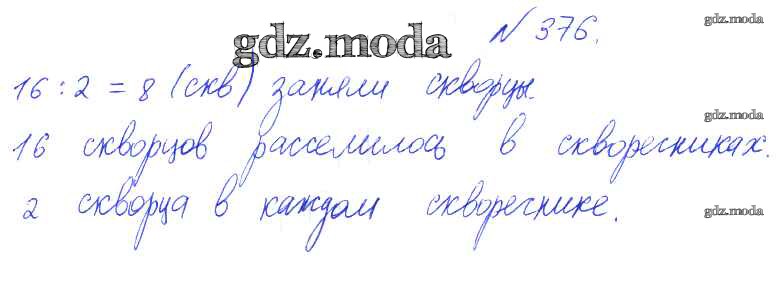 № 376.
gdz.moda
gdz.moda
16 : 2 = 8 (скв) заняли скворцы.
gdz.moda
16 скворцов расселилось в скворечниках.
2 скворца в каждом скворечнике.
gdz.moda